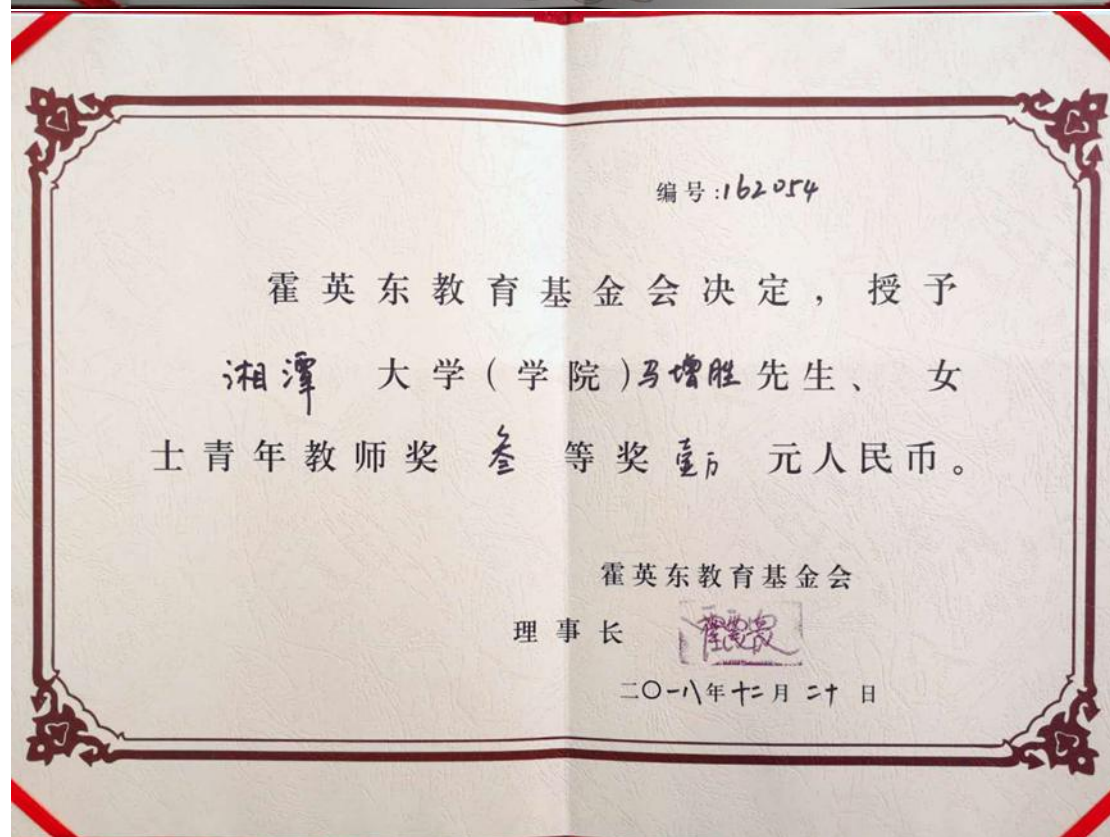 编号:162054
霍英东教育基金会决定，授予
湘潭 大学(学院)马增胜先生、 女
士青年教师奖 叁 等奖 壹万 元人民币。
霍英东教育基金会
理事长 霍震寰
二〇一八年十二月二十日